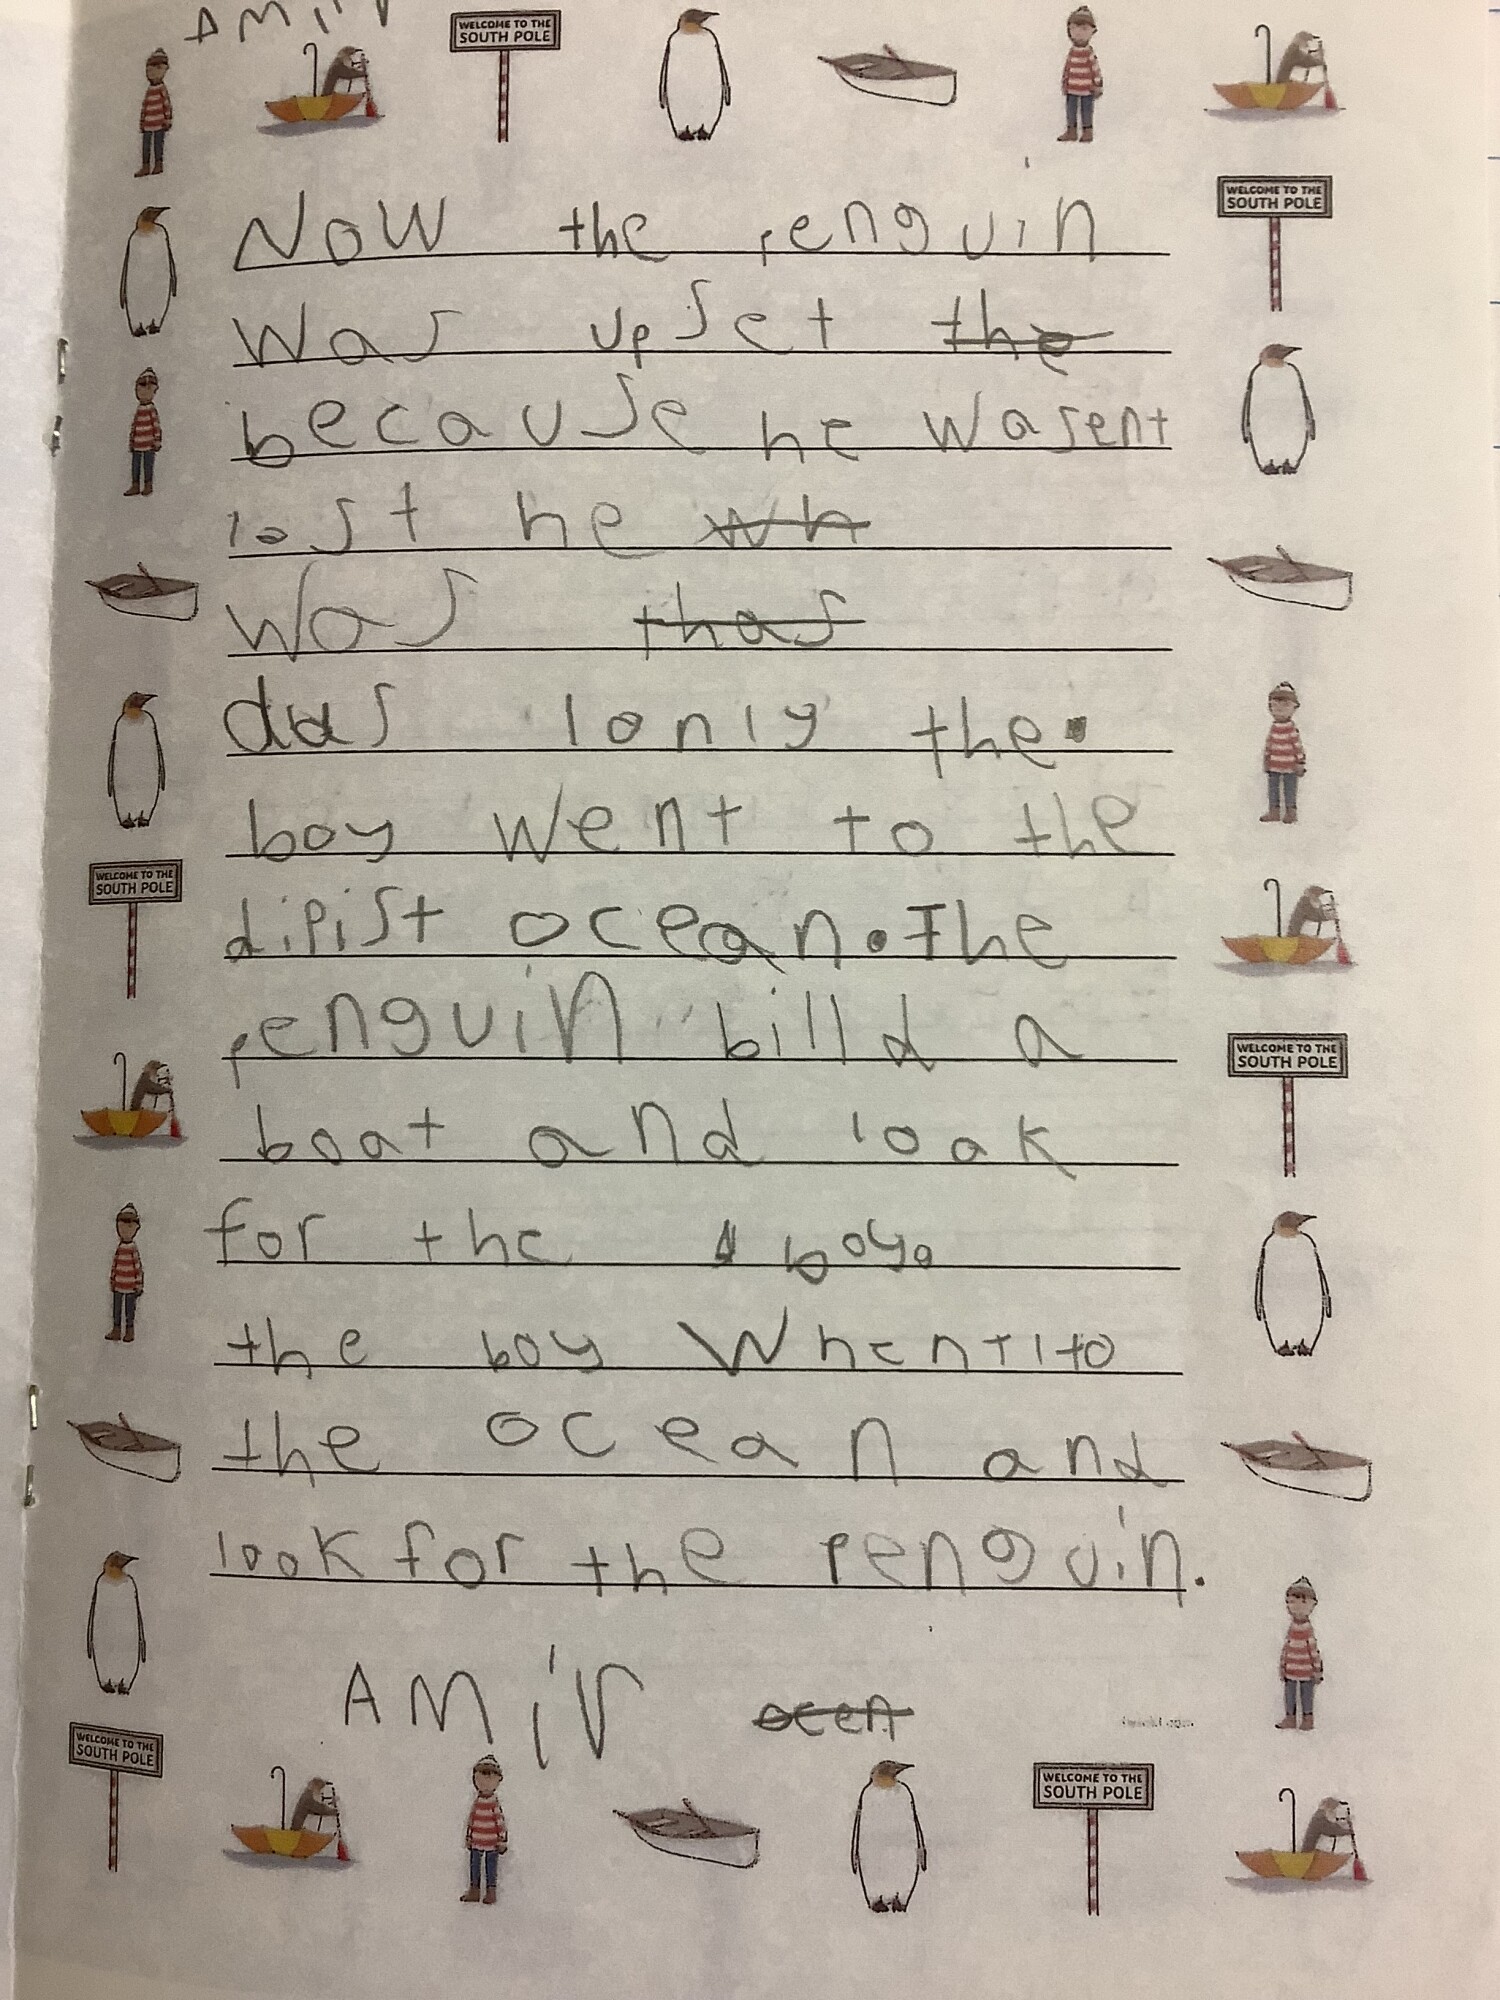 AMIr
WELCOME TO THE
SOUTH POLE
WELCOME TO THE
SOUTH POLE
Now the penguin
was upset the
because he wasent
lost he wh
was thas
das lonly the
boy went to the
dipist ocean. The
penguin billd a
boat and look
for the boy.
the boy whent to
the ocean and
look for the penguin.
AMir ocen
WELCOME TO THE
SOUTH POLE
WELCOME TO THE
SOUTH POLE
WELCOME TO THE
SOUTH POLE
WELCOME TO THE
SOUTH POLE